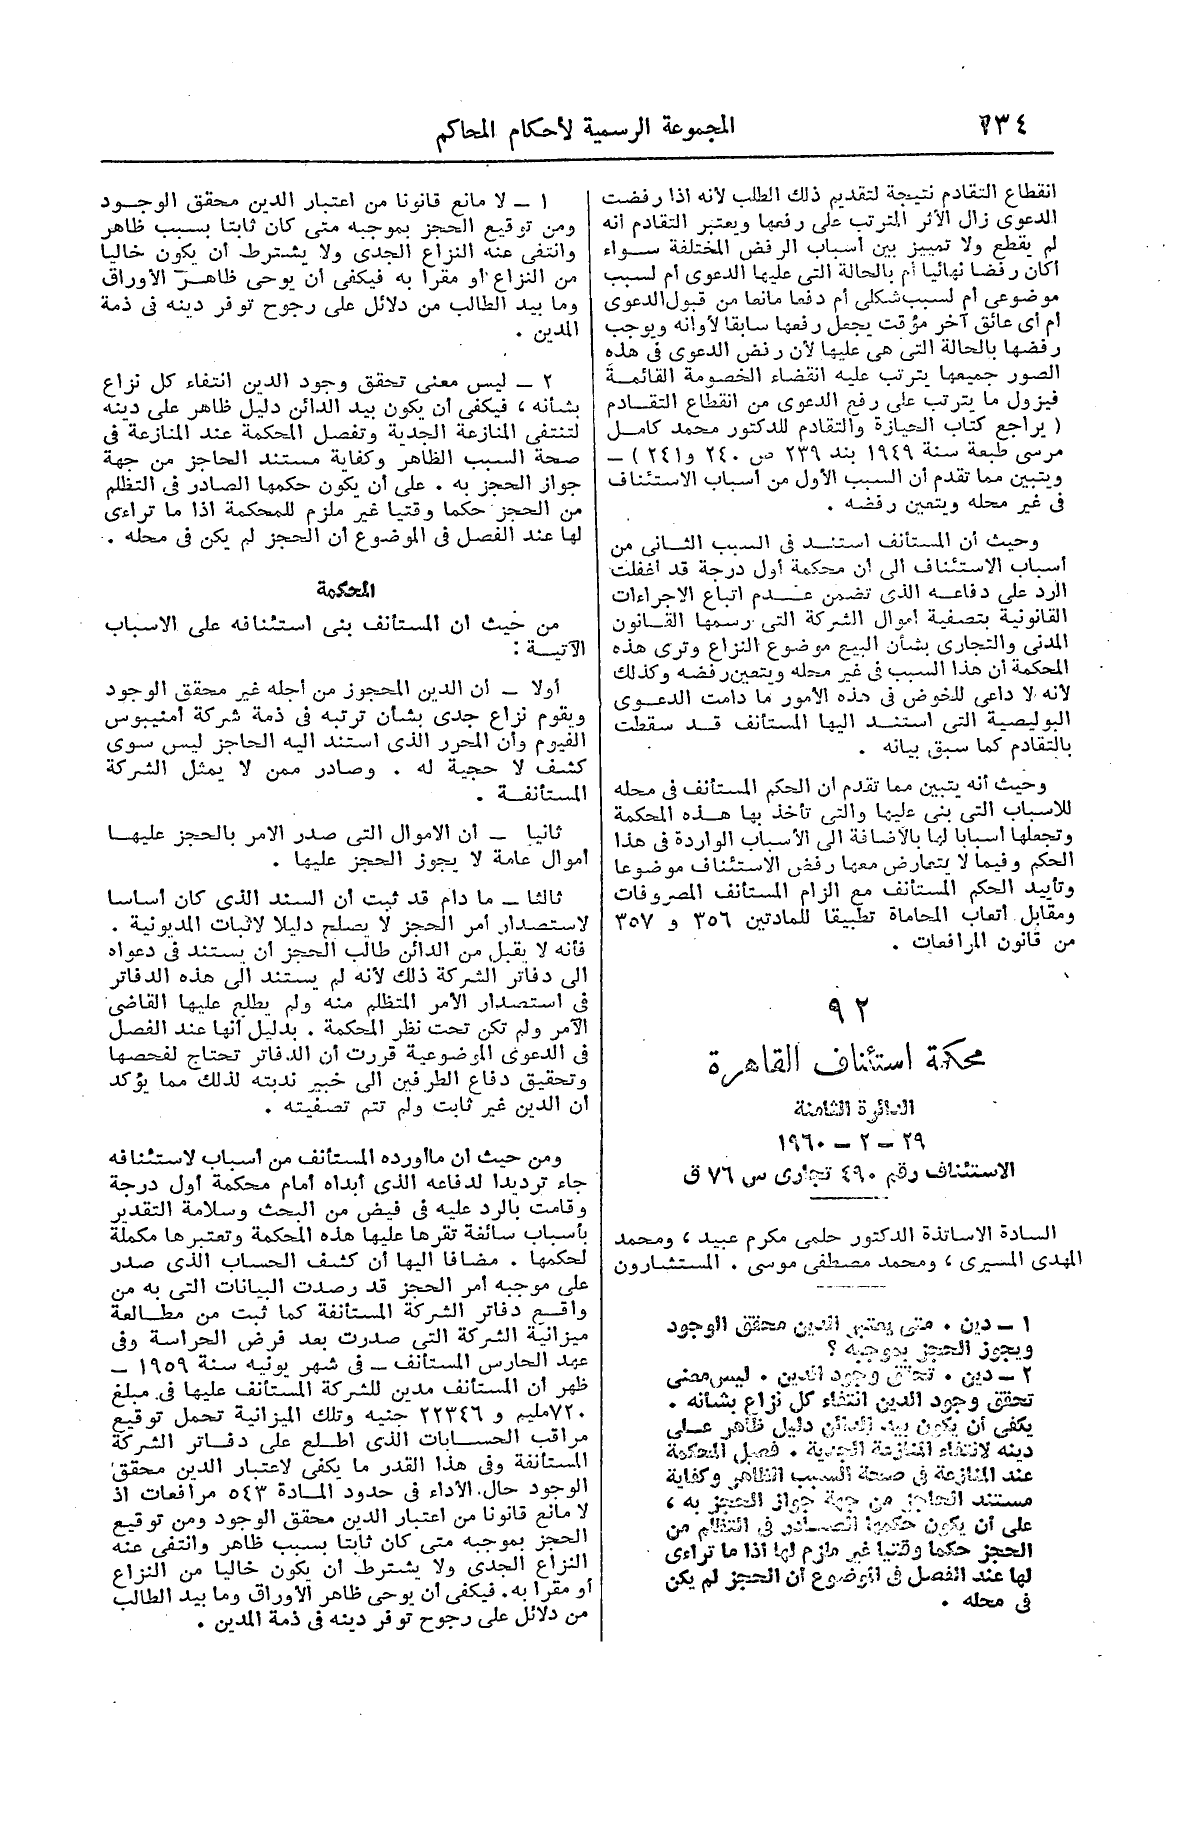 ٦٣٤
المجموعة الرسمية لأحكام المحاكم
انقطاع التقادم نتيجة لتقديم ذلك الطلب لأنه اذا رفضت
الدعوى زال الأثر المترتب على رفعها ويعتبر التقادم أنه
لم يقطع ولا تمييز بين أسباب الرفض المختلفة سواء
أكان رفضا نهائيا أم بالحالة التى عليها الدعوى أم لسبب
موضوعى أم لسبب شكلى أم دفعا مانعا من قبول الدعوى
أم أى عائق آخر مؤقت يجعل رفعها سابقا لأوانه ويوجب
رفضها بالحالة التى هى عليها لأن رفض الدعوى فى هذه
الصور جميعها يترتب عليه انقضاء الخصومة القائمة
فيزول ما يترتب على رفع الدعوى من انقطاع التقادم
( يراجع كتاب الحيازة والتقادم للدكتور محمد كامل
مرسى طبعة سنة ١٩٤٩ بند ٢٣٩ ص ٢٤٠ و٢٤١ ) —
ويتبين مما تقدم أن السبب الأول من أسباب الاستئناف
فى غير محله ويتعين رفضه .
وحيث أن المستأنف استند فى السبب الثانى من
أسباب الاستئناف الى أن محكمة أول درجة قد أغفلت
الرد على دفاعه الذى تضمن عدم اتباع الاجراءات
القانونية بتصفية أموال الشركة التى رسمها القانون
المدنى والتجارى بشأن البيع موضوع النزاع وترى هذه
المحكمة أن هذا السبب فى غير محله ويتعين رفضه وكذلك
لأنه لا داعى للخوض فى هذه الأمور ما دامت الدعوى
البوليصية التى استند اليها المستأنف قد سقطت
بالتقادم كما سبق بيانه .
وحيث أنه يتبين مما تقدم أن الحكم المستأنف فى محله
للاسباب التى بنى عليها والتى تأخذ بها هذه المحكمة
وتجعلها أسبابا لها بالاضافة الى الأسباب الواردة فى هذا
الحكم وفيما لا يتعارض معها رفض الاستئناف موضوعا
وتأييد الحكم المستأنف مع الزام المستأنف المصروفات
ومقابل أتعاب المحاماة تطبيقا للمادتين ٣٥٦ و ٣٥٧
من قانون المرافعات .
٩٢
محكمة استئناف القاهرة
الدائرة الثامنة
٢٩ – ٢ – ١٩٦٠
الاستئناف رقم ٤٩٠ تجارى س ٧٦ ق
السادة الاساتذة الدكتور حلمى مكرم عبيد ، ومحمد
المهدى المسيرى ، ومحمد مصطفى موسى . المستشارون
١ – دين . متى يعتبر الدين محقق الوجود
ويجوز الحجز بموجبه ؟
٢ – دين . تحقق وجود الدين . ليس معنى
تحقق وجود الدين انتفاء كل نزاع بشأنه .
يكفى أن يكون بيد الدائن دليل ظاهر على
دينه لانتفاء المنازعة الجدية . فصل المحكمة
عند المنازعة فى صحة السبب الظاهر وكفاية
مستند الحاجز من جهة جواز الحجز به ،
على أن يكون حكمها الصادر فى التظلم من
الحجز حكما وقتيا غير ملزم لها اذا ما تراءى
لها عند الفصل فى الموضوع أن الحجز لم يكن
فى محله .
١ – لا مانع قانونا من اعتبار الدين محقق الوجود
ومن توقيع الحجز بموجبه متى كان ثابتا بسبب ظاهر
وانتفى عنه النزاع الجدى ولا يشترط أن يكون خاليا
من النزاع أو مقرا به فيكفى أن يوحى ظاهر الأوراق
وما بيد الطالب من دلائل على رجوح توفر دينه فى ذمة
المدين .
٢ – ليس معنى تحقق وجود الدين انتفاء كل نزاع
بشأنه ، فيكفى أن يكون بيد الدائن دليل ظاهر على دينه
لتنتفى المنازعة الجدية وتفصل المحكمة عند المنازعة فى
صحة السبب الظاهر وكفاية مستند الحاجز من جهة
جواز الحجز به . على أن يكون حكمها الصادر فى التظلم
من الحجز حكما وقتيا غير ملزم للمحكمة اذا ما تراءى
لها عند الفصل فى الموضوع أن الحجز لم يكن فى محله .
المحكمة
من حيث أن المستأنف بنى استئنافه على الاسباب
الآتية :
أولا – أن الدين المحجوز من أجله غير محقق الوجود
ويقوم نزاع جدى بشأن ترتبه فى ذمة شركة أمنيبوس
الفيوم وأن المحرر الذى استند اليه الحاجز ليس سوى
كشف لا حجية له . وصادر ممن لا يمثل الشركة
المستأنفة .
ثانيا – أن الاموال التى صدر الامر بالحجز عليها
أموال عامة لا يجوز الحجز عليها .
ثالثا – ما دام قد ثبت أن السند الذى كان أساسا
لاستصدار أمر الحجز لا يصلح دليلا لاثبات المديونية .
فأنه لا يقبل من الدائن طالب الحجز أن يستند فى دعواه
الى دفاتر الشركة ذلك لأنه لم يستند الى هذه الدفاتر
فى استصدار الأمر المتظلم منه ولم يطلع عليها القاضى
الآمر ولم تكن تحت نظر المحكمة . بدليل أنها عند الفصل
فى الدعوى الموضوعية قررت أن الدفاتر تحتاج لفحصها
وتحقيق دفاع الطرفين الى خبير ندبته لذلك مما يؤكد
أن الدين غير ثابت ولم تتم تصفيته .
ومن حيث أن ما أورده المستأنف من أسباب لاستئنافه
جاء ترديدا لدفاعه الذى أبداه أمام محكمة أول درجة
وقامت بالرد عليه فى فيض من البحث وسلامة التقدير
بأسباب سائغة تقرها عليها هذه المحكمة وتعتبرها مكملة
لحكمها . مضافا اليها أن كشف الحساب الذى صدر
على موجبه أمر الحجز قد رصدت البيانات التى به من
واقع دفاتر الشركة المستأنفة كما ثبت من مطالعة
ميزانية الشركة التى صدرت بعد فرض الحراسة وفى
عهد الحارس المستأنف – فى شهر يونيه سنة ١٩٥٩ –
ظهر أن المستأنف مدين للشركة المستأنف عليها فى مبلغ
٧٢٠مليم و ٢٢٣٤٦ جنيه وتلك الميزانية تحمل توقيع
مراقب الحسابات الذى اطلع على دفاتر الشركة
المستأنفة وفى هذا القدر ما يكفى لاعتبار الدين محقق
الوجود حال الأداء فى حدود المادة ٥٤٣ مرافعات اذ
لا مانع قانونا من اعتبار الدين محقق الوجود ومن توقيع
الحجز بموجبه متى كان ثابتا بسبب ظاهر وانتفى عنه
النزاع الجدى ولا يشترط أن يكون خاليا من النزاع
أو مقرا به. فيكفى أن يوحى ظاهر الأوراق وما بيد الطالب
من دلائل على رجوح توفر دينه فى ذمة المدين .